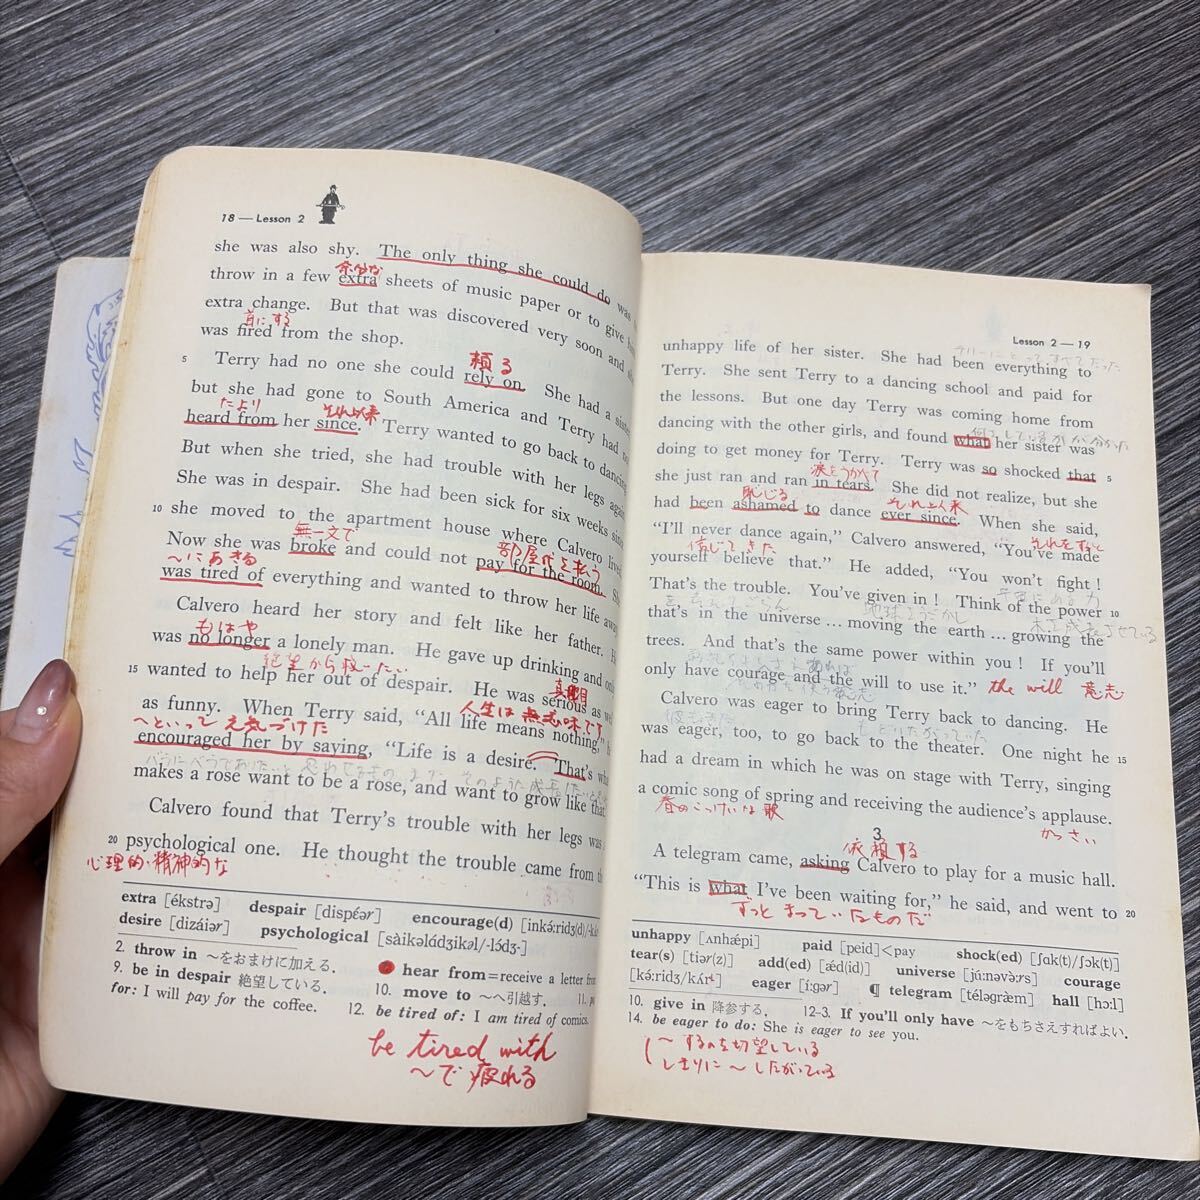 18 — Lesson 2
she was also shy. The only thing she could do was
余分な
throw in a few extra sheets of music paper or to give
extra change. But that was discovered very soon and
首にする
was fired from the shop.
頼る
5 Terry had no one she could rely on. She had a sister
but she had gone to South America and Terry had no
たより それ以来
heard from her since. Terry wanted to go back to dancing
But when she tried, she had trouble with her legs again
She was in despair. She had been sick for six weeks since
10 she moved to the apartment house where Calvero lived
無一文で 部屋代を払う
Now she was broke and could not pay for the room. She
〜にあきる
was tired of everything and wanted to throw her life away
Calvero heard her story and felt like her father. He
もはや
was no longer a lonely man. He gave up drinking and only
絶望から救いたい
15 wanted to help her out of despair. He was serious as well
真面目
人生は無意味です
as funny. When Terry said, “All life means nothing,” he
〜といって元気づけた
encouraged her by saying, “Life is a desire. That's what
makes a rose want to be a rose, and want to grow like that.
Calvero found that Terry's trouble with her legs was a
20 psychological one. He thought the trouble came from the
心理的・精神的な
extra [ékstrə] despair [dispéər] encourage(d) [inkə́:ridʒ(d)/-kʌ́
desire [dizáiər] psychological [sàikəládʒikəl/-lɔ́dʒ-]
2. throw in 〜をおまけに加える. hear from=receive a letter from
9. be in despair 絶望している. 10. move to 〜へ引越す. 11.
for: I will pay for the coffee. 12. be tired of: I am tired of comics.
be tired with
〜で疲れる
Lesson 2 — 19
unhappy life of her sister. She had been everything to
Terry. She sent Terry to a dancing school and paid for
the lessons. But one day Terry was coming home from
dancing with the other girls, and found what her sister was
doing to get money for Terry. Terry was so shocked that 5
涙をうかべて
she just ran and ran in tears. She did not realize, but she
恥じる それ以来
had been ashamed to dance ever since. When she said,
“I'll never dance again,” Calvero answered, “You've made
信じてきた
yourself believe that.” He added, “You won't fight!
That's the trouble. You've given in! Think of the power 10
that's in the universe ... moving the earth ... growing the
trees. And that's the same power within you! If you'll
only have courage and the will to use it.” the will 意志
Calvero was eager to bring Terry back to dancing. He
was eager, too, to go back to the theater. One night he 15
had a dream in which he was on stage with Terry, singing
a comic song of spring and receiving the audience's applause.
春のこっけいな歌 かっさい
3
依頼する
A telegram came, asking Calvero to play for a music hall.
“This is what I've been waiting for,” he said, and went to 20
ずっとまっていたものだ”
unhappy [ʌnhǽpi] paid [peid]<pay shock(ed) [ʃɑk(t)/ʃɔk(t)]
tear(s) [tiər(z)] add(ed) [ǽd(id)] universe [jú:nəvə̀:rs] courage
[kə́:ridʒ/kʌ́r] eager [í:gər] ¶ telegram [téləgræm] hall [hɔ:l]
10. give in 降参する. 12-3. If you'll only have 〜をもちさえすればよい.
14. be eager to do: She is eager to see you.
〜するのを切望している
しきりに〜したがっている